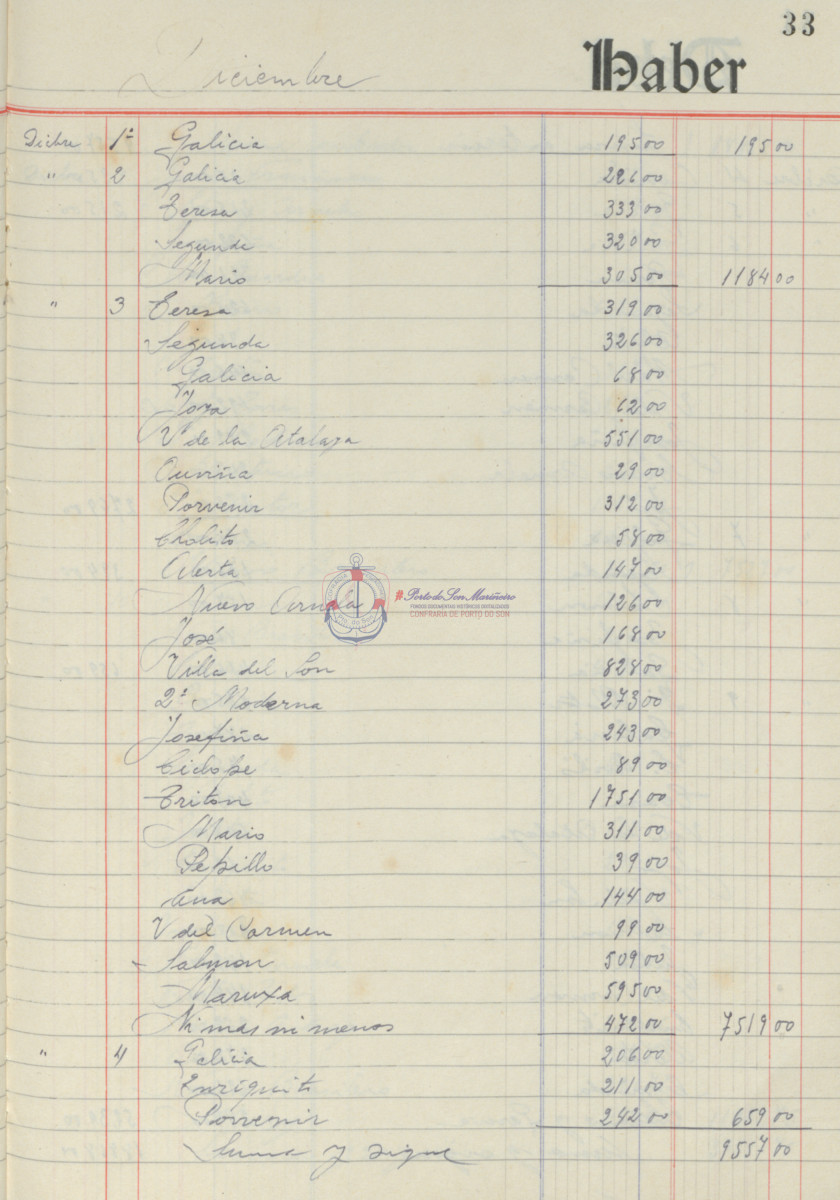 33
Diciembre Haber
Dicbre 1º Galicia 195 00 195 00
" 2 Galicia 226 00
Teresa 333 00
Segunda 320 00
Mario 305 00 1184 00
" 3 Teresa 319 00
Segunda 326 00
Galicia 68 00
62 00
Vª de la Atalaya 551 00
Cuviña 29 00
Porvenir 312 00
Cholito 58 00
Alerta 147 00
Nuevo 126 00
José 168 00
Villa del Son 828 00
2ª Moderna 273 00
Josefiña 243 00
Ciclope 89 00
Triton 1751 00
Mario 311 00
Pepillo 39 00
Ana 144 00
V del Carmen 99 00
Salmon 509 00
Maruxa 595 00
Ni mas ni menos 472 00 7519 00
" 4 Galicia 206 00
Enriquito 211 00
Porvenir 242 00 659 00
Suma y sigue 9557 00
#Porto do Son Mariñeiro
FONDOS DOCUMENTAIS HISTÓRICOS DIXITALIZADOS
CONFRARÍA DE PORTO DO SON